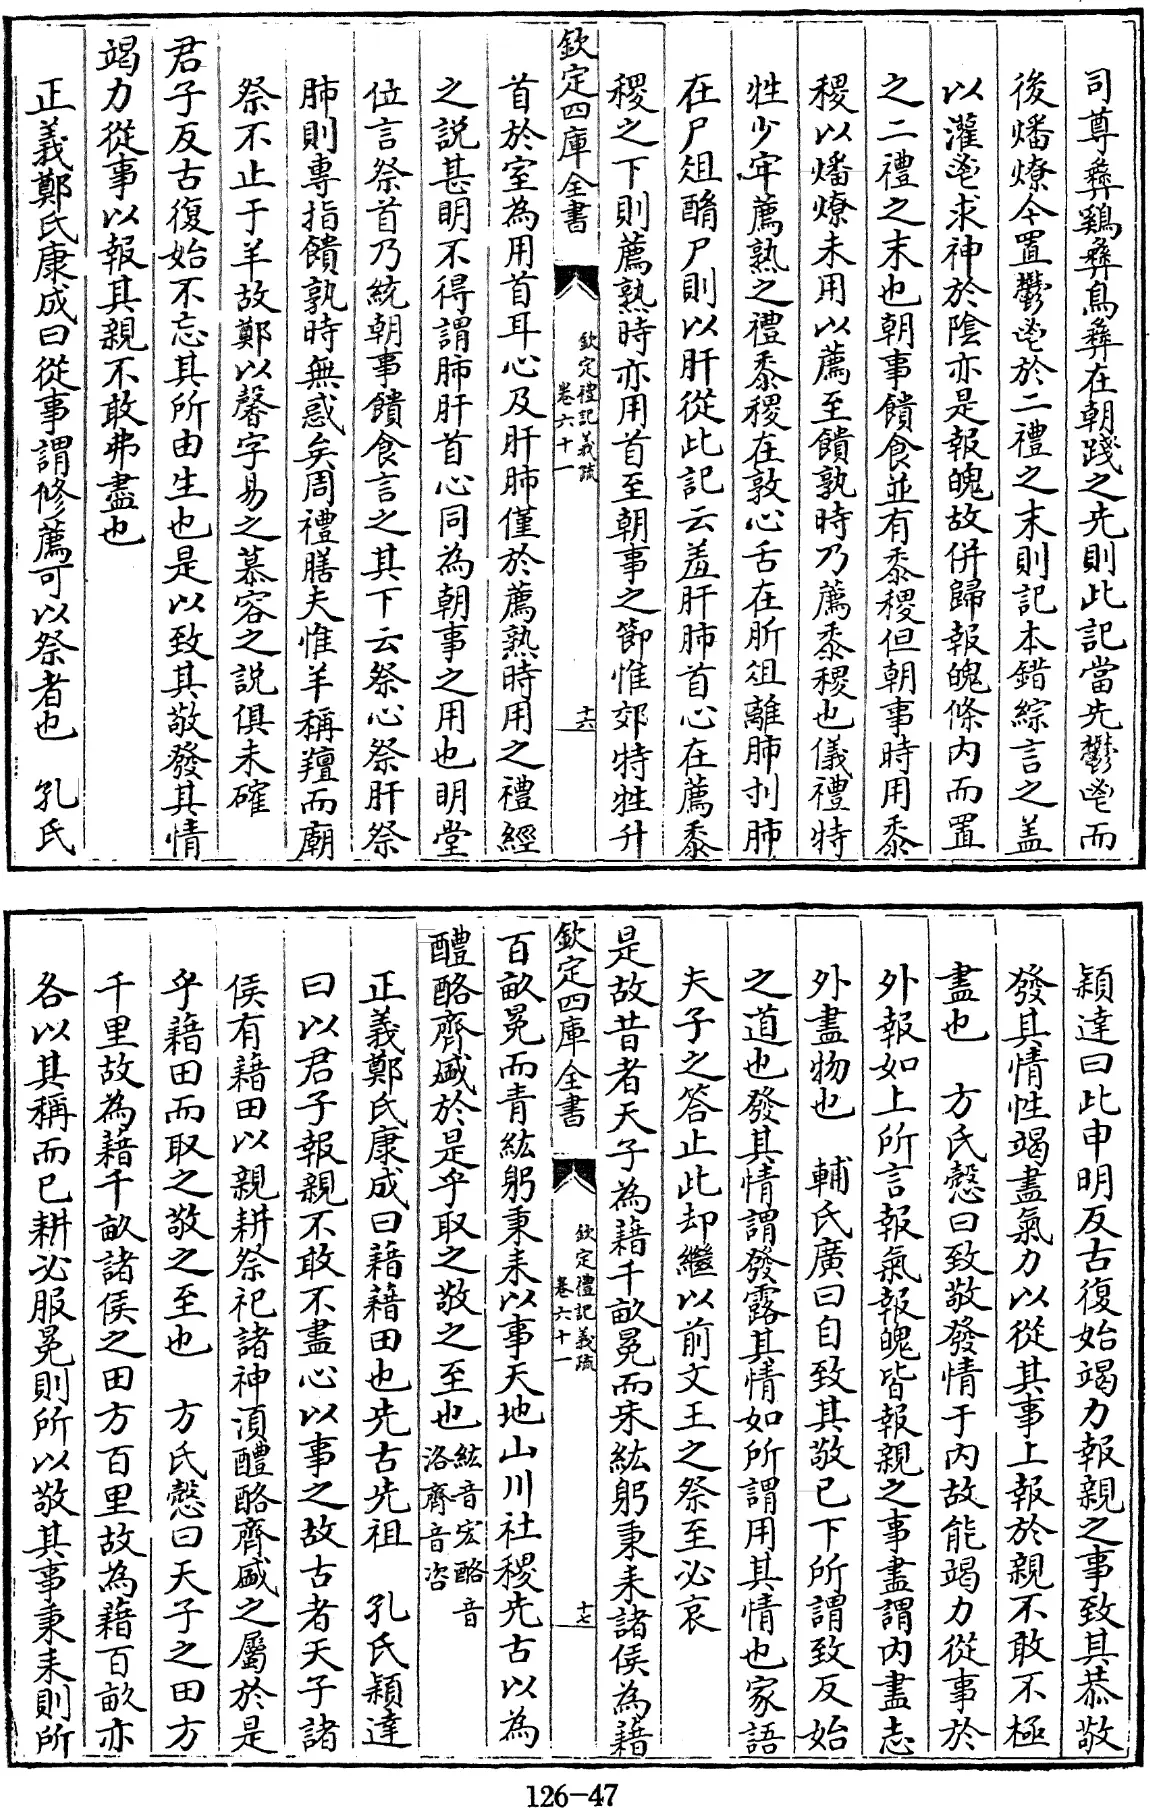 司尊彝鷄彝鳥彝在朝踐之先則此記當先鬱鬯而
後燔燎今置鬱鬯於二禮之末則記本錯綜言之盖
以灌鬯求神於陰亦是報魄故併歸報魄條内而置
之二禮之末也朝事饋食並有黍稷但朝事時用黍
稷以燔燎未用以薦至饋孰時乃薦黍稷也儀禮特
牲少牢薦熟之禮黍稷在敦心舌在肵俎離肺刌肺
在尸俎酳尸則以肝從此記云羞肝肺首心在薦黍
稷之下則薦熟時亦用首至朝事之節惟郊特牲升
欽定四庫全書
欽定禮記義疏
卷六十一
十六
首於室為用首耳心及肝肺僅於薦熟時用之禮經
之説甚明不得謂肺肝首心同為朝事之用也明堂
位言祭首乃統朝事饋食言之其下云祭心祭肝祭
肺則專指饋孰時無惑矣周禮膳夫惟羊稱羶而廟
祭不止于羊故鄭以馨字易之慕容之説俱未確
君子反古復始不忘其所由生也是以致其敬發其情
竭力從事以報其親不敢弗盡也
正義鄭氏康成曰從事謂修薦可以祭者也　孔氏
穎達曰此申明反古復始竭力報親之事致其恭敬
發其情性竭盡氣力以從其事上報於親不敢不極
盡也　方氏慤曰致敬發情于内故能竭力從事於
外報如上所言報氣報魄皆報親之事盡謂内盡志
外盡物也　輔氏廣曰自致其敬已下所謂致反始
之道也發其情謂發露其情如所謂用其情也家語
夫子之答止此却繼以前文王之祭至必哀
是故昔者天子為藉千畝冕而朱紘躬秉耒諸侯為藉
欽定四庫全書
欽定禮記義疏
卷六十一
十七
百畝冕而青紘躬秉耒以事天地山川社稷先古以為
醴酪齊盛於是乎取之敬之至也紘音宏酪音洛齊音咨
正義鄭氏康成曰藉藉田也先古先祖　孔氏穎達
曰以君子報親不敢不盡心以事之故古者天子諸
侯有藉田以親耕祭祀諸神湏醴酪齊盛之屬於是
乎藉田而取之敬之至也　方氏慤曰天子之田方
千里故為藉千畝諸侯之田方百里故為藉百畝亦
各以其稱而已耕必服冕則所以敬其事秉耒則所
126-47